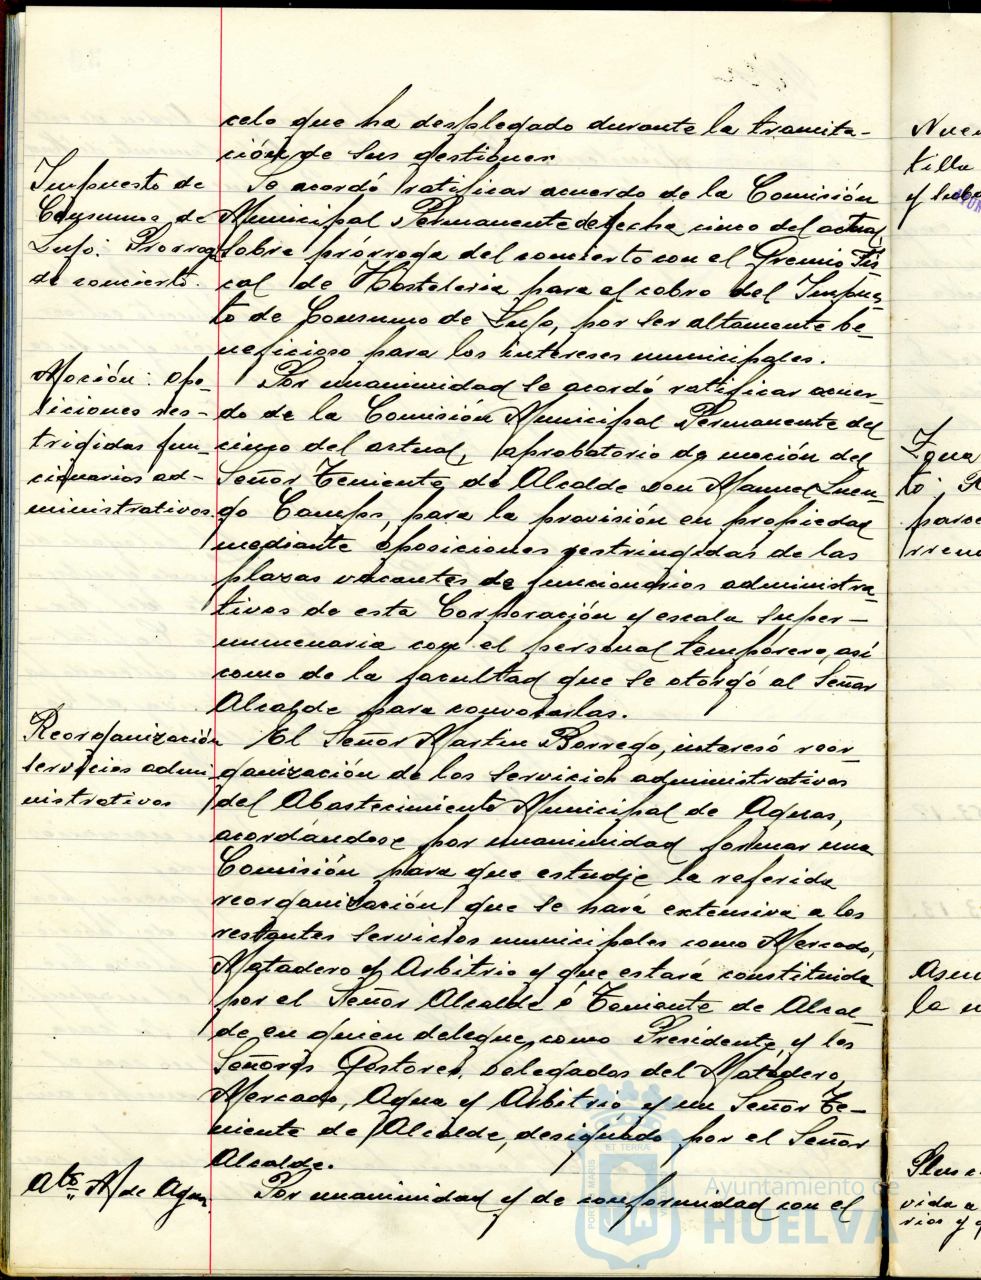 celo que ha desplegado durante la tramita-
ción de sus gestiones.
Impuesto de
Consumos de
Lujo: Prorroga
de concierto.
Se acordó ratificar acuerdo de la Comisión
Municipal Permanente de fecha cinco del actual,
sobre prórroga del concierto con el Gremio Fis-
cal de Hosteleria para el cobro del Impues-
to de Consumo de Lujo, por ser altamente be-
neficioso para los intereses municipales.
Moción: Opo-
siciones res-
tringidas fun-
cionarios ad-
ministrativos.
Por unanimidad se acordó ratificar acuer-
do de la Comisión Municipal Permanente del
cinco del actual, aprobatorio de moción del
Señor Teniente de Alcalde Don Manuel Luen-
go Camps, para la provisión en propiedad
mediante oposiciones restringidas de las
plazas vacantes de funcionarios administra-
tivos de esta Corporación y escala super-
numeraria con el personal temporero, así
como de la facultad que se otorgó al Señor
Alcalde para convocarlas.
Reorganización
servicios admi-
nistrativos
El Señor Martin Borrego, interesó reor-
ganización de los servicios administrativos
del Abastecimiento Municipal de Aguas,
acordándose por unanimidad formar una
Comisión para que estudie la referida
reorganización que se hará extensiva a los
restantes servicios municipales como Mercado,
Matadero y Arbitrio y que estará constituida
por el Señor Alcalde ó Teniente de Alcal-
de en quien delegue, como Presidente, y los
Señores Gestores, Delegados del Matadero,
Mercado, Agua y Arbitrio y un Señor Te-
niente de Alcalde, designado por el Señor
Alcalde.
Ato M. de Aguas
Por unanimidad y de conformidad con el
tilla
y
to:
la
vida a
rios y
Ayuntamiento de
HUELVA
PORTUS MARIS
ET TERRE